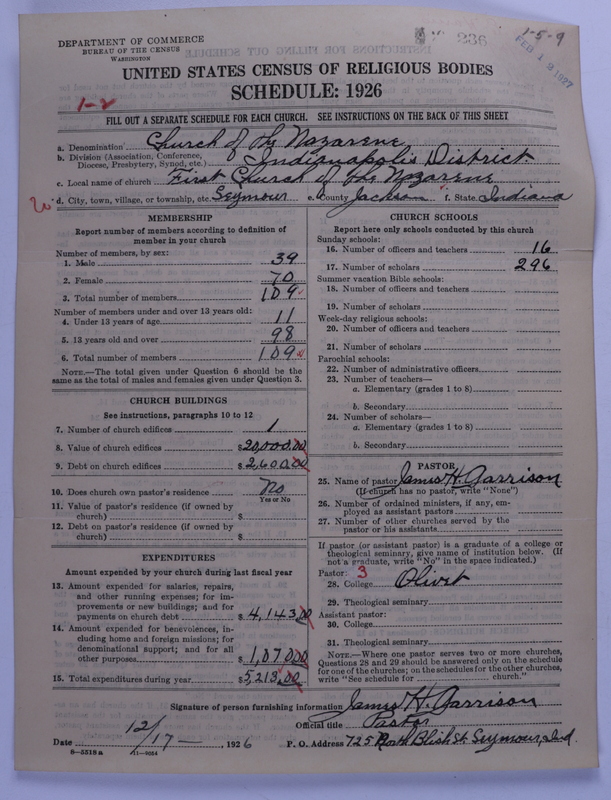 DEPARTMENT OF COMMERCE
BUREAU OF THE CENSUS
WASHINGTON
236
1-5-9
FEB 12 1927
UNITED STATES CENSUS OF RELIGIOUS BODIES
SCHEDULE: 1926
1-2
FILL OUT A SEPARATE SCHEDULE FOR EACH CHURCH. SEE INSTRUCTIONS ON THE BACK OF THIS SHEET
a. Denomination Church of the Nazarene
b. Division (Association, Conference, Diocese, Presbytery, Synod, etc.) Indianapolis District
c. Local name of church First Church of the Nazarene
d. City, town, village, or township, etc. Seymour e. County Jackson f. State Indiana
MEMBERSHIP
Report number of members according to definition of
member in your church
Number of members, by sex:
1. Male 39
2. Female 70
3. Total number of members 109
Number of members under and over 13 years old:
4. Under 13 years of age 11
5. 13 years old and over 98
6. Total number of members 109
NOTE.—The total given under Question 6 should be
same as the total of males and females given under Question 3.
CHURCH BUILDINGS
See instructions, paragraphs 10 to 12
7. Number of church edifices 1
8. Value of church edifices $20,000.00
9. Debt on church edifices $2,600.00
10. Does church own pastor's residence No
Yes or No
11. Value of pastor's residence (if owned by
church) $
12. Debt on pastor's residence (if owned by
church) $
EXPENDITURES
Amount expended by your church during last fiscal year
13. Amount expended for salaries, repairs,
and other running expenses; for im-
provements or new buildings; and for
payments on church debt $4,143.00
14. Amount expended for benevolences, in-
cluding home and foreign missions; for
denominational support; and for all
other purposes $1,070.00
15. Total expenditures during year $5,213.00
CHURCH SCHOOLS
Report here only schools conducted by this church
Sunday schools:
16. Number of officers and teachers 16
17. Number of scholars 296
Summer vacation Bible schools:
18. Number of officers and teachers
19. Number of scholars
Week-day religious schools:
20. Number of officers and teachers
21. Number of scholars
Parochial schools:
22. Number of administrative officers
23. Number of teachers—
a. Elementary (grades 1 to 8)
b. Secondary
24. Number of scholars—
a. Elementary (grades 1 to 8)
b. Secondary
PASTOR
25. Name of pastor James H. Garrison
(If church has no pastor, write "None")
26. Number of ordained ministers, if any, em-
ployed as assistant pastors
27. Number of other churches served by the
pastor or his assistants
If pastor (or assistant pastor) is a graduate of a college or
theological seminary, give name of institution below. (If
not a graduate, write "No" in the space indicated.)
Pastor: 3
28. College Olivet
29. Theological seminary
Assistant pastor:
30. College
31. Theological seminary
NOTE.—Where one pastor serves two or more churches,
Questions 28 and 29 should be answered only on the schedule
for one of the churches; on the schedules for the other churches,
write "See schedule for church."
Signature of person furnishing information James H. Garrison
Official title Pastor
Date 12/17 — 1926 P. O. Address 725 North Blish St. Seymour, Ind
8-5518 a 11-9054